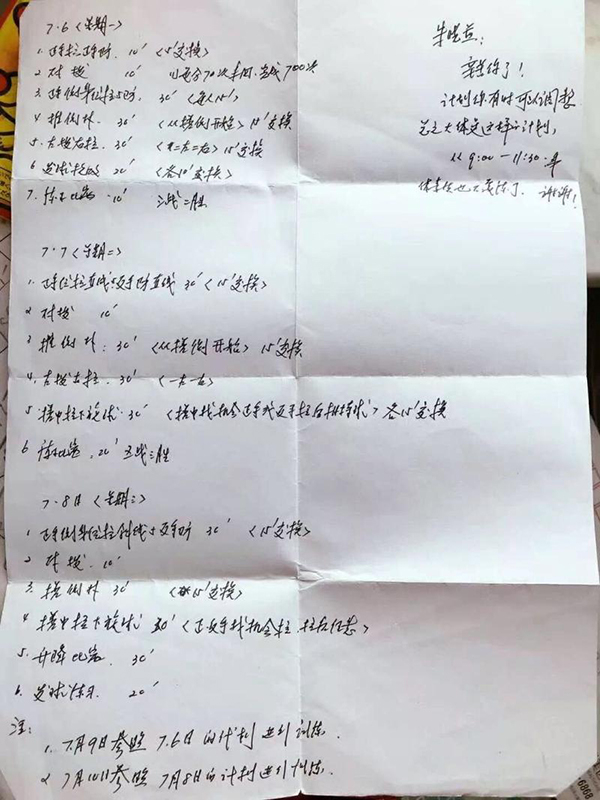 7.6〈星期一〉
1. 正手拉正手防. 10′ 〈5′交换〉
2 对拨 10′ 以每分70次来回, 完成700次
3. 正手侧身位拉与防. 30′ 〈每人15′〉
4 推侧扑. 30′ 〈从搭侧开始〉 15′交换
5. 左拨右拉. 30′ 〈二左二右〉 15′交换
6 发球抢攻 20′ 〈各10′交换〉
7. 练习比赛. 10′ 三战二胜
7.7〈星期二〉
1. 正手位拉直线与反手防直线 30′〈15′交换〉
2 对拨 10′
3 推侧扑. 30′ 〈从搭侧开始〉 15′交换
4. 左拨右拉. 30′ 〈一左一右〉
5 搭中拉下旋球. 30′ 〈搭中找机会正手或反手拉后相持球〉各15′交换
6 练习比赛. 20′ 五战三胜
7.8日〈星期三〉
1 正手侧身位拉斜线与反手防 30′ 〈15′交换〉
2 对拨. 10′
3. 搭侧扑 30′ 〈15′交换〉
4 搭中拉下旋球 30′〈正反手找机会拉. 拉后任意〉
5. 升降比赛. 30′
6. 发球练习. 20′
注:
1. 7月9日参照 7.6日的计划进行训练.
2 7月10日参照 7月8日的计划进行训练.
辛苦你了!
计划你有时可以调整
总之大体是这样的计划,
从 9:00 — 11:30.
谢谢!